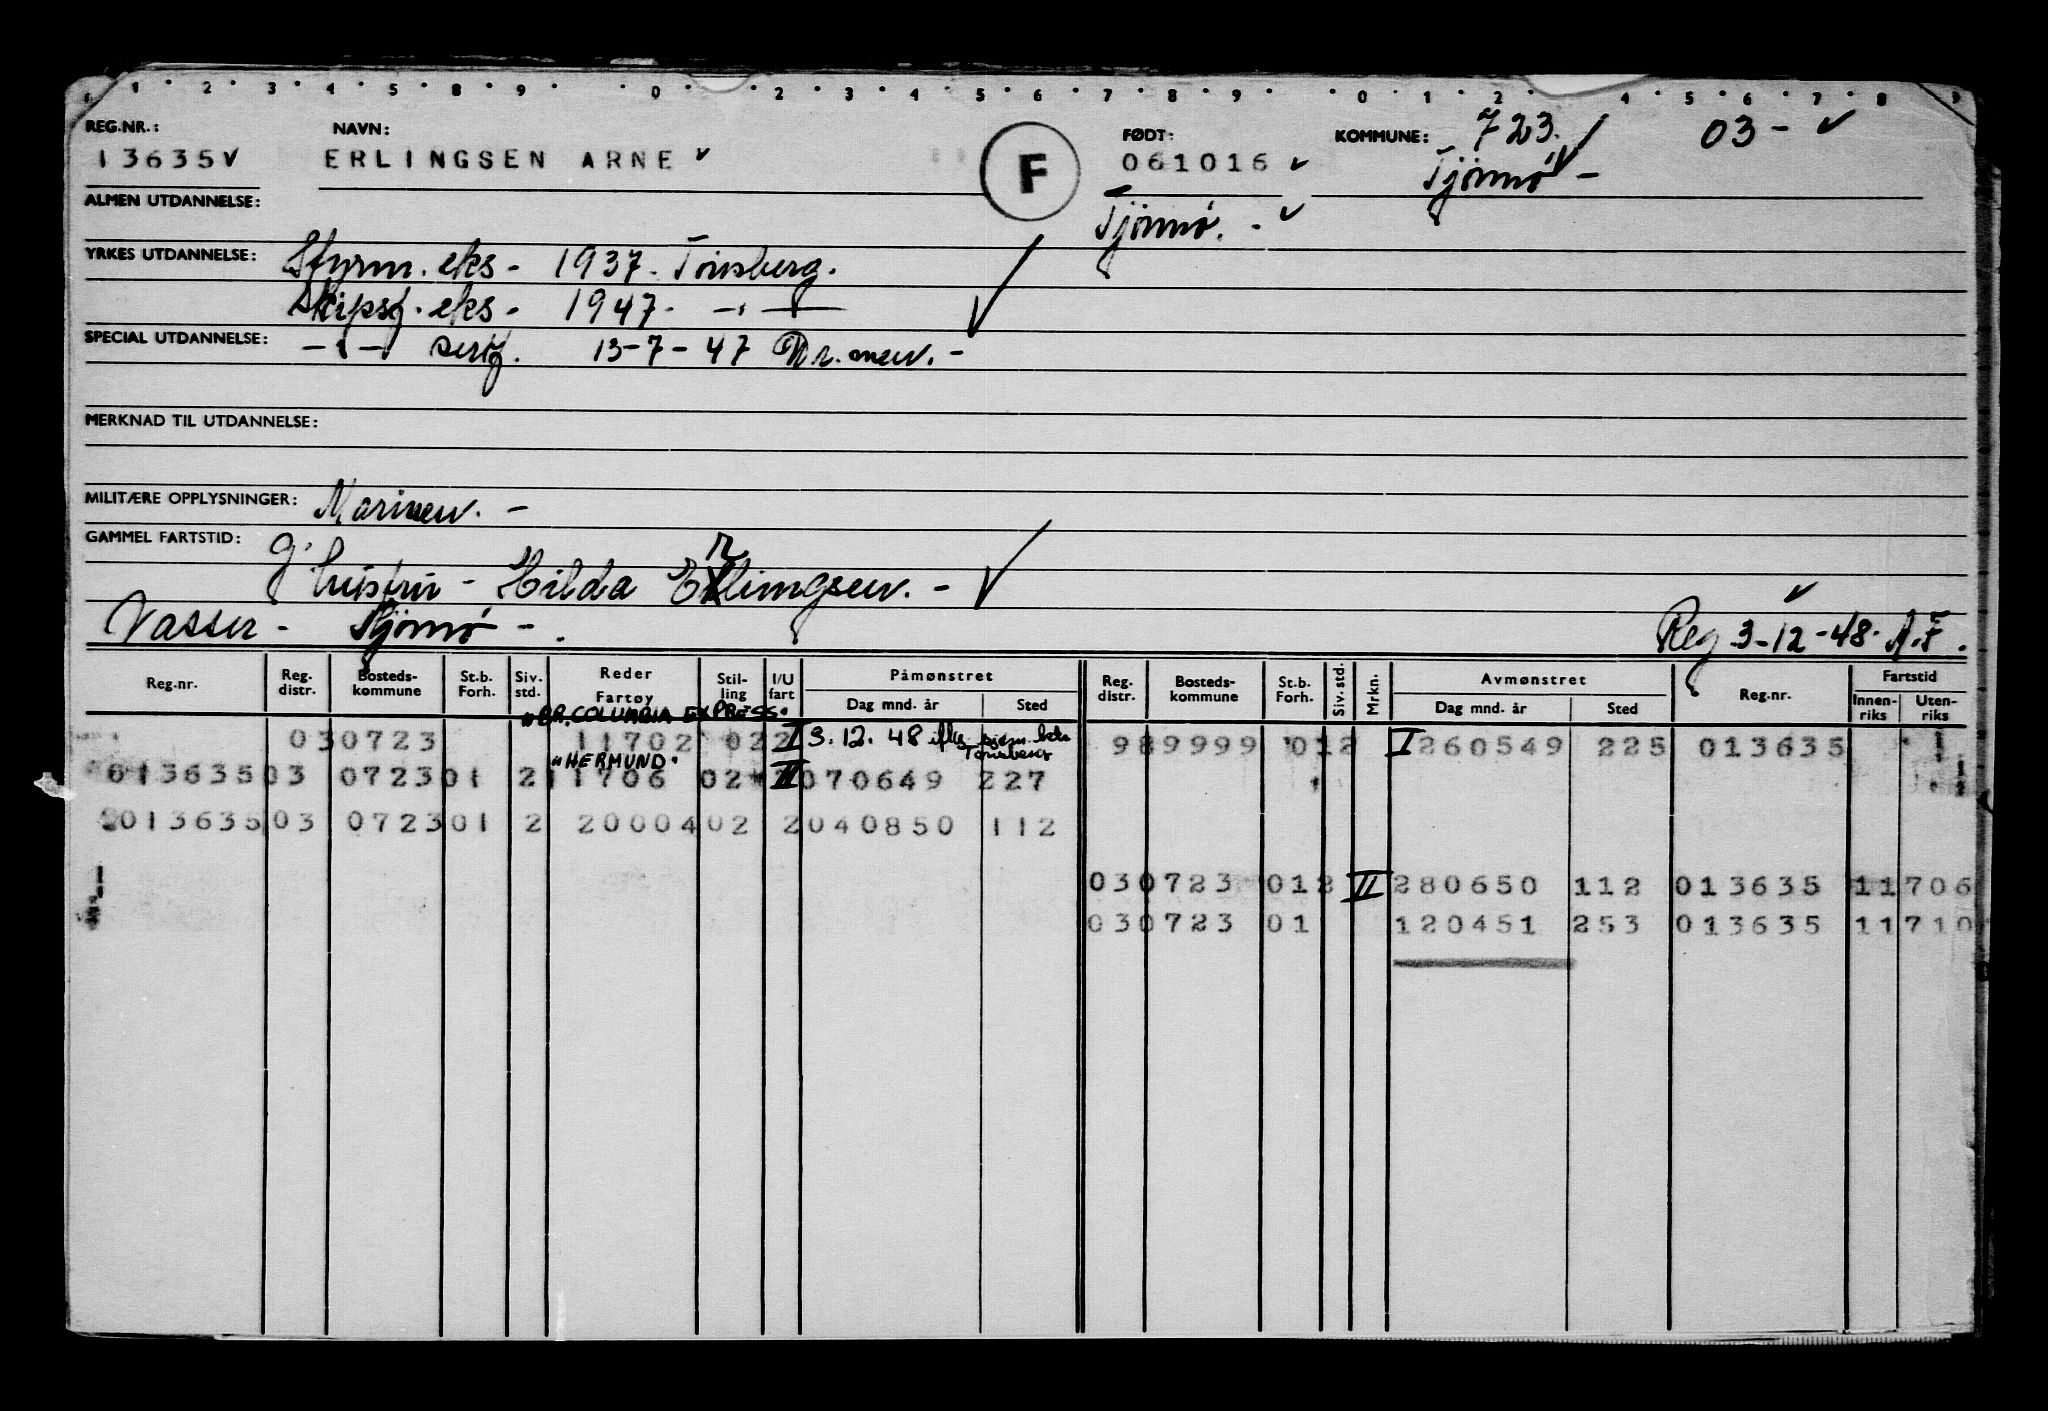 1 2 3 4 5 8 9 0 2 3 4 5 6 7 8 9 0 1 2 4 5 6 7 8 9
REG.NR.: NAVN: FØDT: KOMMUNE: 723. 03-
13635 ERLINGSEN ARNE F 061016 Tjömö -
ALMEN UTDANNELSE: Tjömö. -
YRKES UTDANNELSE: Styrm. eks - 1937. Tönsberg.
Skipsf. eks - 1947. -"-
SPECIAL UTDANNELSE: -"- sert. 13-7-47
MERKNAD TIL UTDANNELSE:
MILITÆRE OPPLYSNINGER: Marinen. -
GAMMEL FARTSTID: g.
hustru - Hilda Erlingsen. -
Vasser - Tjömö - . Reg 3-12-48. A.F.
Reg.nr. Reg. distr. Bosteds-kommune St.b. Forh. Siv. std. Reder Fartøy Stil-ling I/U fart Påmønstret Dag mnd. år Sted Reg. distr. Bosteds-kommune St.b. Forh. Siv. std. Mrkn. Avmønstret Dag mnd. år Sted Reg.nr. Fartstid Innen-riks Uten-riks
"BR. COLUMBIA EXPRESS"
030723 11702 022 I 3.12.48 Tönsberg 989999 012 I 260549 225 013635
"HERMUND"
013635 03 0723 01 2 11706 02 2 II 070649 227
013635 03 0723 01 2 20004 02 2 040850 112
030723 012 II 280650 112 013635 11706
030723 01 120451 253 013635 11710